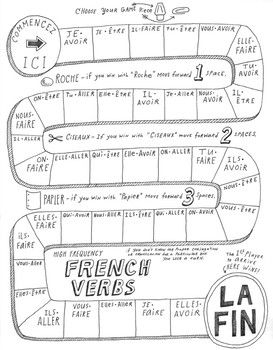 CHOOSE YOUR GAME PIECE
COMMENCEZ
ICI
JE-AVOIR
JE-ÊTRE
IL-FAIRE
TU-ÊTRE
ELLE-FAIRE
TU-AVOIR
IL-ÊTRE
ROCHE - if you win with "Roche" move forward 1 space.
NOUS-FAIRE
ON-ÊTRE
TU-ALLER
ELLE-ÊTRE
IL-AVOIR
JE-ALLER
NOUS-AVOIR
IL-ALLER
CISEAUX - if you win with "CISEAUX" move forward 2 spaces.
ON-FAIRE
ELLE-ALLER
QUI-ÊTRE
ELLE-AVOIR
ON-ALLER
TU-FAIRE
ILS-AVOIR
PAPIER - if you win with "Papier" move forward 3 spaces.
ELLES-FAIRE
QUI-AVOIR
NOUS-ALLER
ILS-ÊTRE
QUI-ALLER
VOUS-AVOIR
NOUS-ÊTRE
ON-AVOIR
ILS-FAIRE
VOUS-ALLER
HIGH FREQUENCY
FRENCH
VERBS
if you don't know the proper conjugation
or pronunciation for a particular box
you lose a turn.
The 1st Player
to arrive
here wins!
ILS-ALLER
VOUS-FAIRE
ELLES-ALLER
JE-FAIRE
ELLES-AVOIR
LA
FIN